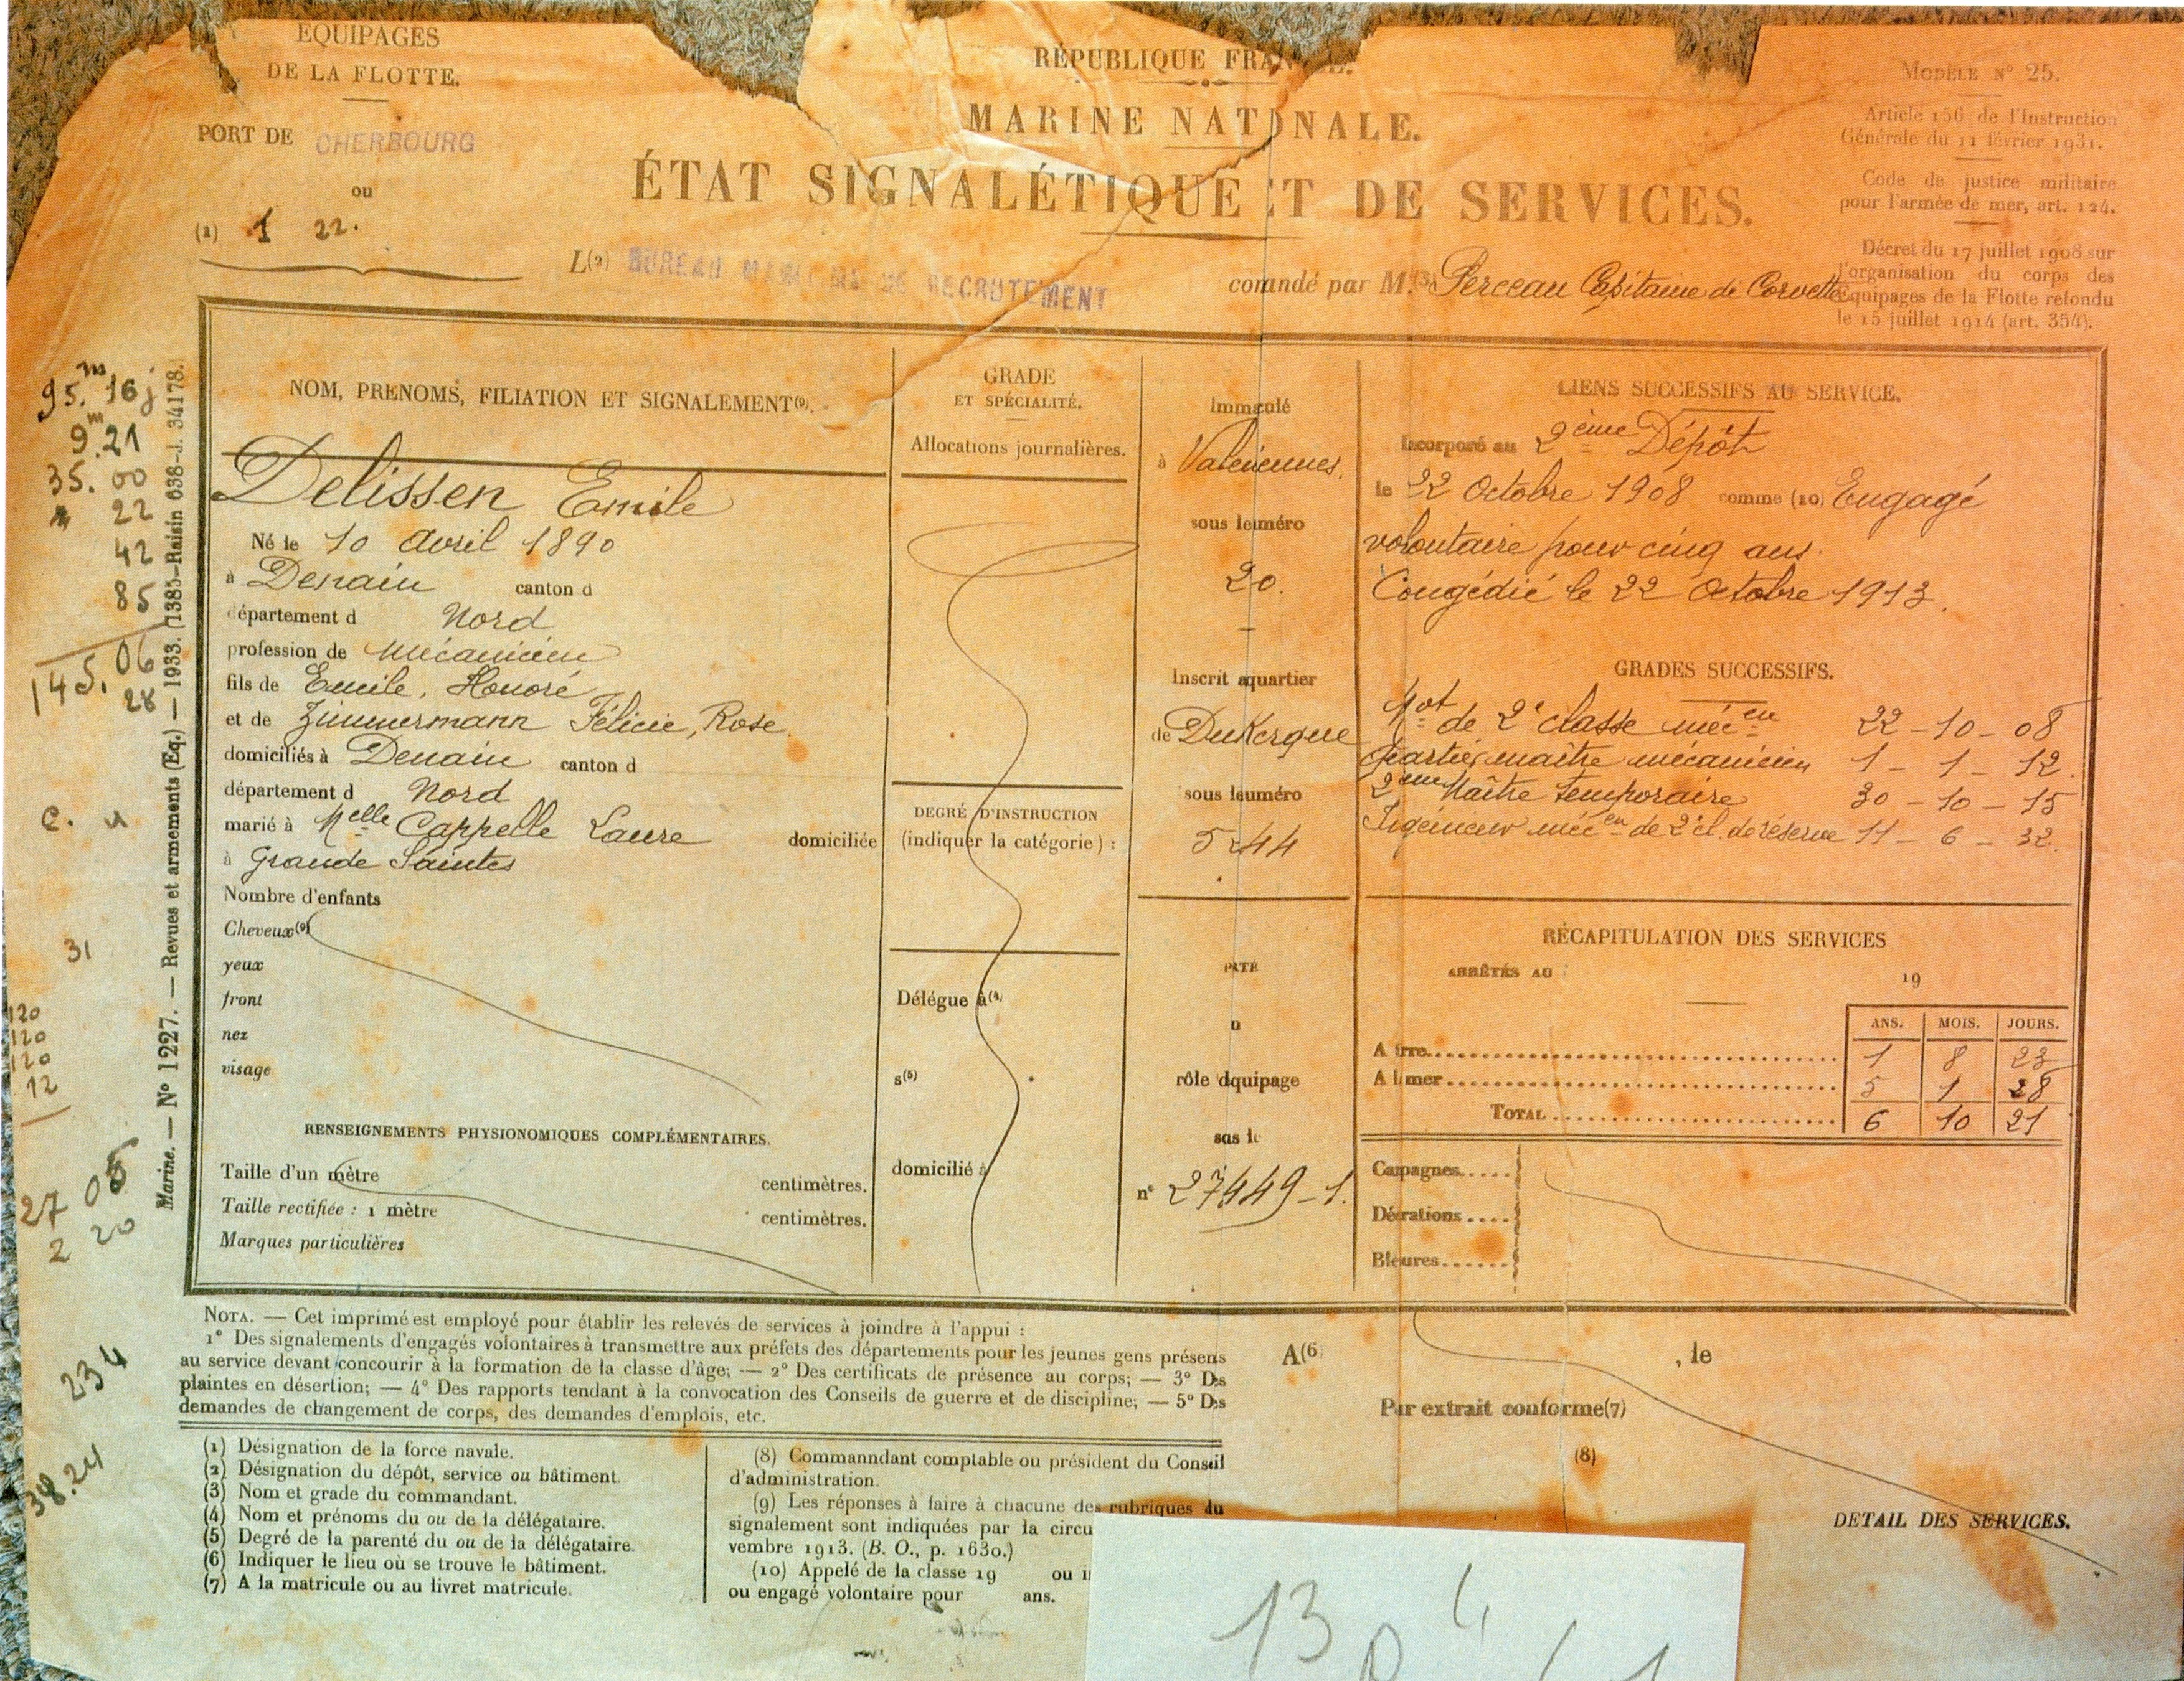 EQUIPAGES
DE LA FLOTTE.
PORT DE CHERBOURG
ou
(1) 1 22.
RÉPUBLIQUE FRAN
MARINE NATONALE.
ÉTAT SIGNALÉTIQUE ET DE SERVICES.
L(2) BUREAU MARITIME DE RECRUTEMENT
comandé par M.(3) Perceau Capitaine de Corvette
MODÈLE N° 25.
Article 156 de l'Instruction
Générale du 11 février 1931.
Code de justice militaire
pour l'armée de mer, art. 124.
Décret du 17 juillet 1908 sur
l'organisation du corps des
Équipages de la Flotte refondu
le 15 juillet 1914 (art. 354).
95.m 16 j
9.m 21
35. 00
22
42
85
145. 06
28
31
120
120
120
12
27 08
2 20
234
38.24
Marine. — N° 1227. — Revues et armements (Eq.) — 1933. (1385-Raisin 638-J. 34178.)
NOM, PRÉNOMS, FILIATION ET SIGNALEMENT(9).
Delissen Emile
Né le 10 avril 1890
à Denain canton d
département d Nord
profession de Mécanicien
fils de Emile, Honoré
et de Zimmermann Félicie, Rose.
domiciliés à Denain canton d
département d Nord
marié à Melle Cappelle Laure domiciliée
à Grande Saintes
Nombre d'enfants
Cheveux(9)
yeux
front
nez
visage
RENSEIGNEMENTS PHYSIONOMIQUES COMPLÉMENTAIRES.
Taille d'un mètre centimètres.
Taille rectifiée : 1 mètre centimètres.
Marques particulières
GRADE
ET SPÉCIALITÉ.
Allocations journalières.
DEGRÉ D'INSTRUCTION
(indiquer la catégorie) :
Délégue à(4)
s(5)
domicilié à
Immaculé
à Valenciennes.
sous le uméro
20.
Inscrit a quartier
de Dunkerque
sous le uméro
5244
rôle d quipage
n° 27449-1.
LIENS SUCCESSIFS AU SERVICE.
Incorporé au 2ème Dépôt
le 22 Octobre 1908 comme (10) Engagé
volontaire pour cinq ans.
Congédié le 22 Octobre 1913.
GRADES SUCCESSIFS.
Mot de 2e classe mécen 22-10-08
Quartier maître mécanicien 1-1-12.
2ème Maître temporaire 30-10-15
Ingénieur mécen de 2e cl. de réserve 11-6-32.
RÉCAPITULATION DES SERVICES
ARRÊTÉS AU 19
ANS. MOIS. JOURS.
A trre 1 8 23
A l mer 5 1 28
TOTAL 6 10 21
Campagnes
Décrations
Bleures
NOTA. — Cet imprimé est employé pour établir les relevés de services à joindre à l'appui :
1° Des signalements d'engagés volontaires à transmettre aux préfets des départements pour les jeunes gens présens
au service devant concourir à la formation de la classe d'âge; — 2° Des certificats de présence au corps; — 3° Des
plaintes en désertion; — 4° Des rapports tendant à la convocation des Conseils de guerre et de discipline; — 5° Des
demandes de changement de corps, des demandes d'emplois, etc.
(1) Désignation de la force navale.
(2) Désignation du dépôt, service ou bâtiment.
(3) Nom et grade du commandant.
(4) Nom et prénoms du ou de la délégataire.
(5) Degré de la parenté du ou de la délégataire.
(6) Indiquer le lieu où se trouve le bâtiment.
(7) A la matricule ou au livret matricule.
(8) Commanndant comptable ou président du Conseil
d'administration.
(9) Les réponses à faire à chacune des rubriques du
signalement sont indiquées par la circu
vembre 1913. (B. O., p. 1630.)
(10) Appelé de la classe 19 ou i
ou engagé volontaire pour ans.
A(6) , le
Par extrait conforme(7)
(8)
DETAIL DES SERVICES.
13 4